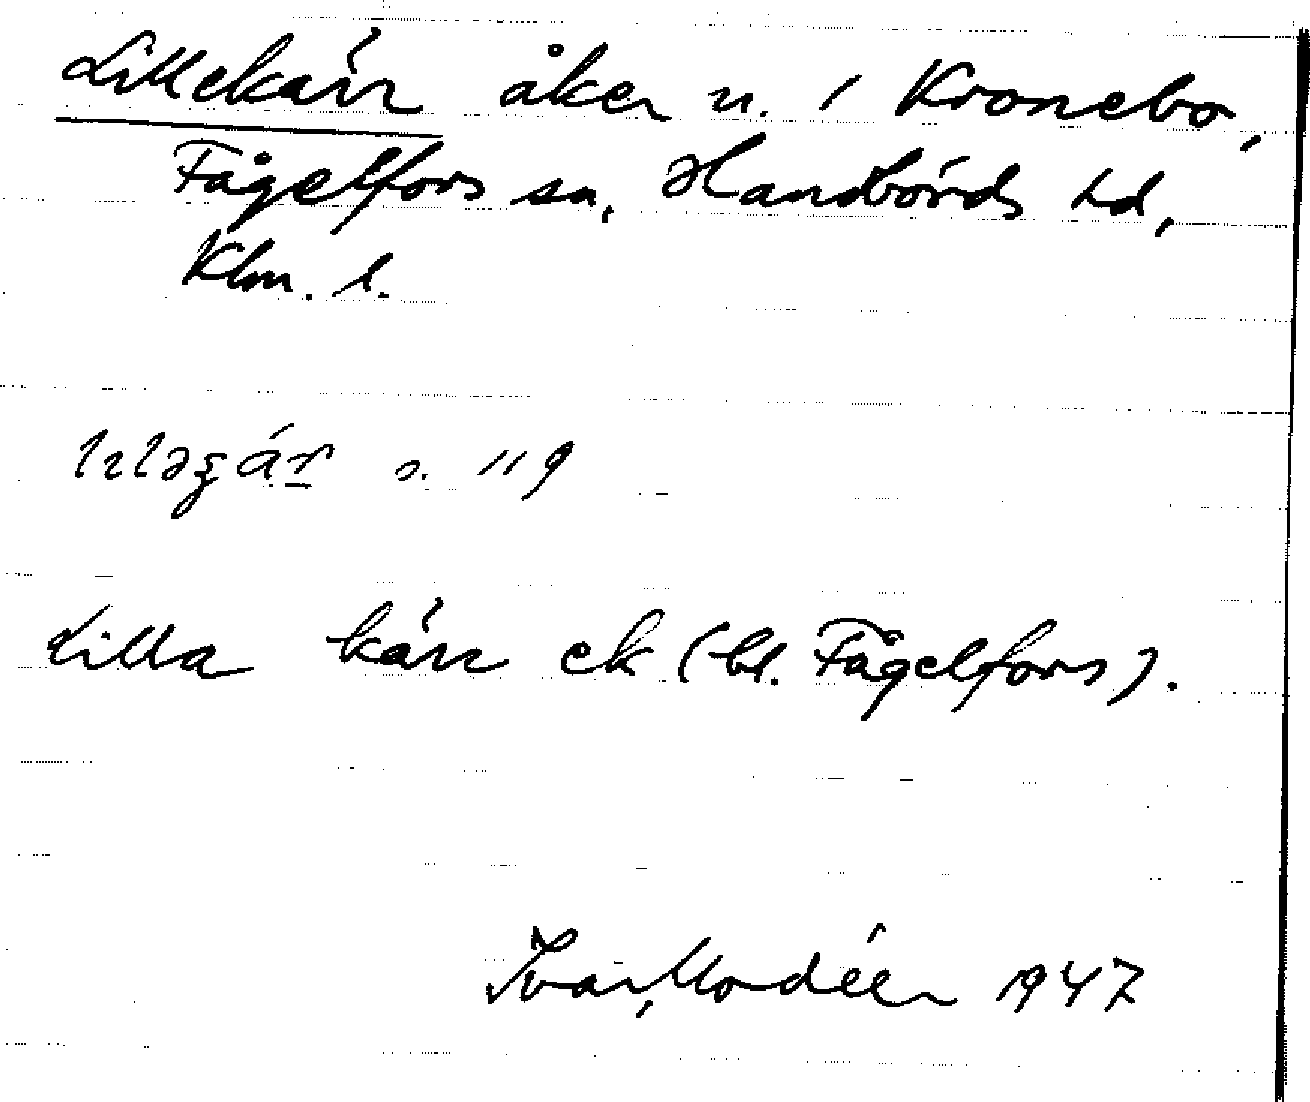 Lillekärr åker n. i Kronebo,
Fågelfors sn, Handbörds hd,
Klm. l.
Lilla kärr ek (bl. Fågelfors).
Ivar Modéer 1947